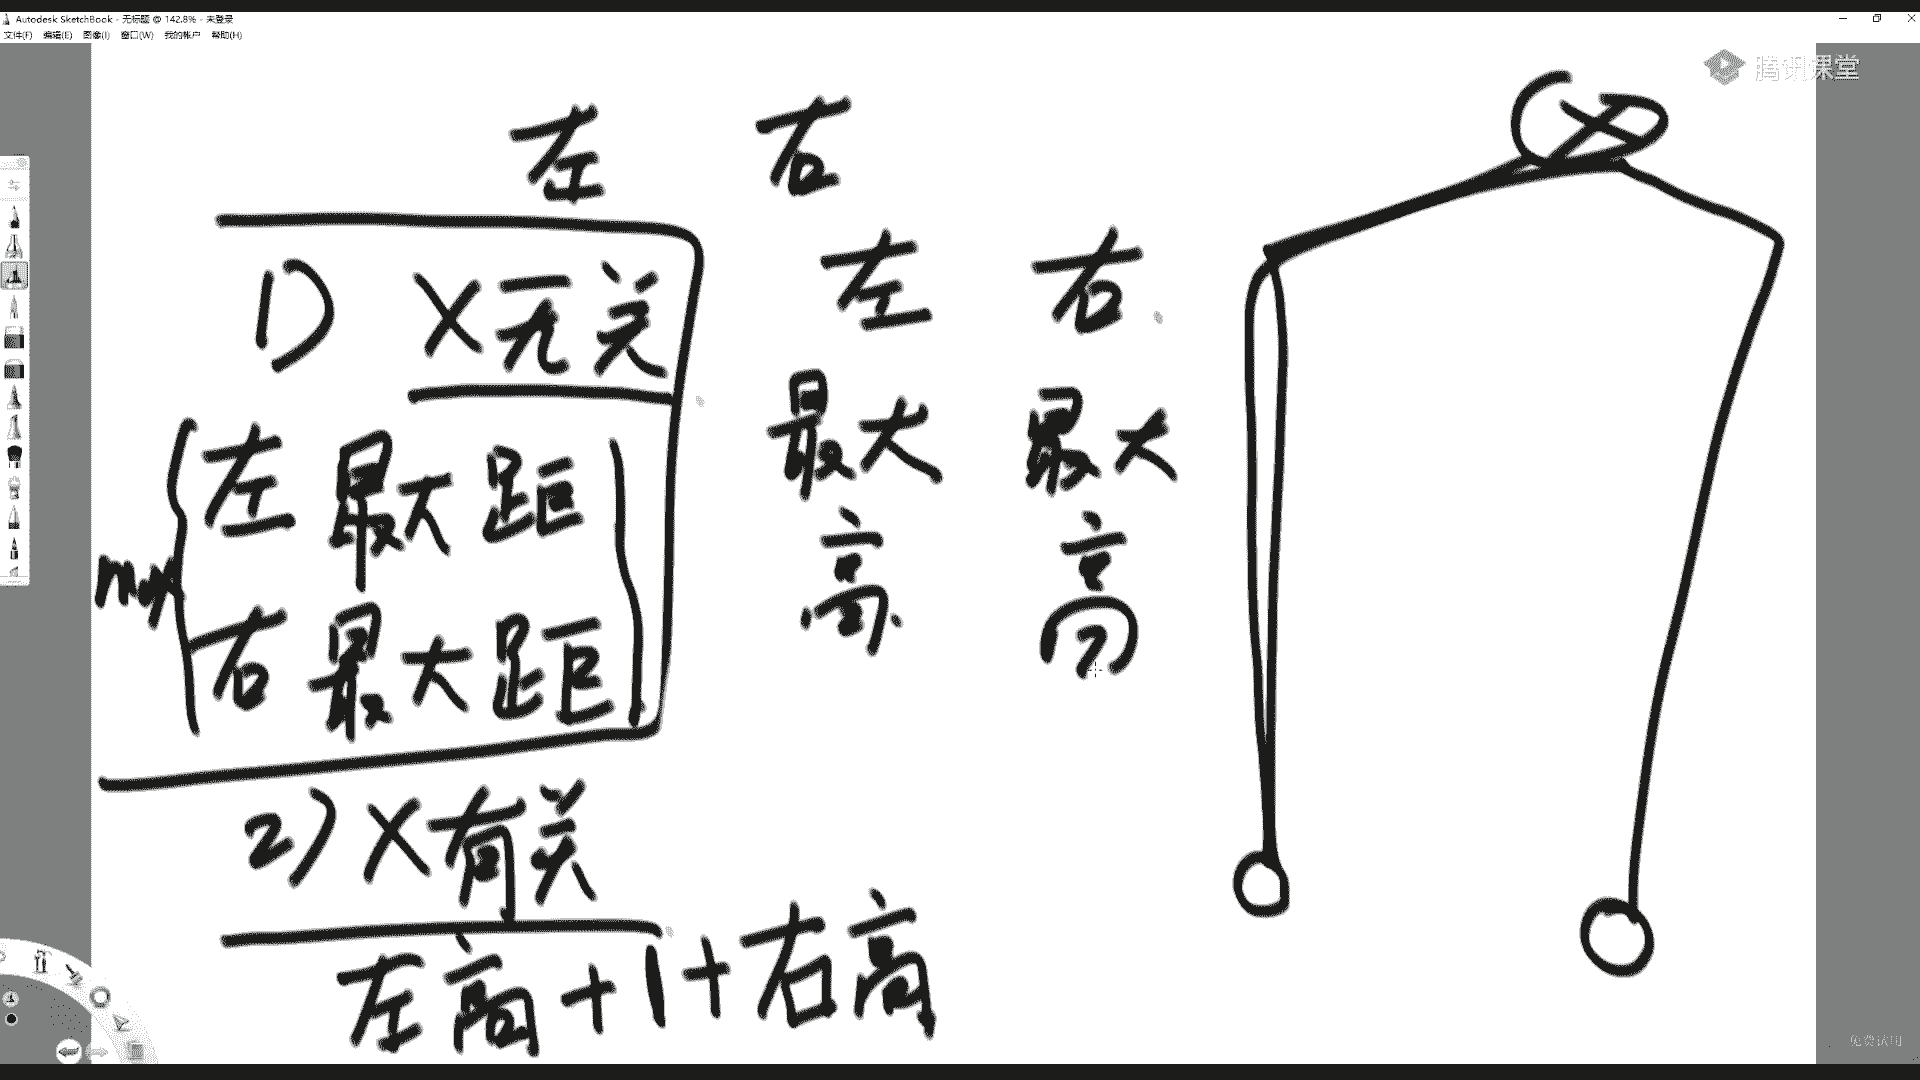 Autodesk SketchBook - 无标题 @ 142.8% - 未登录
文件(F) 编辑(E) 图像(I) 窗口(W) 我的帐户 帮助(H)
腾讯课堂
左 右
1) X无关
左 右
最大 最大
高 高
左最大距
max
右最大距
2) X有关
左高+1+右高
X
免费试用